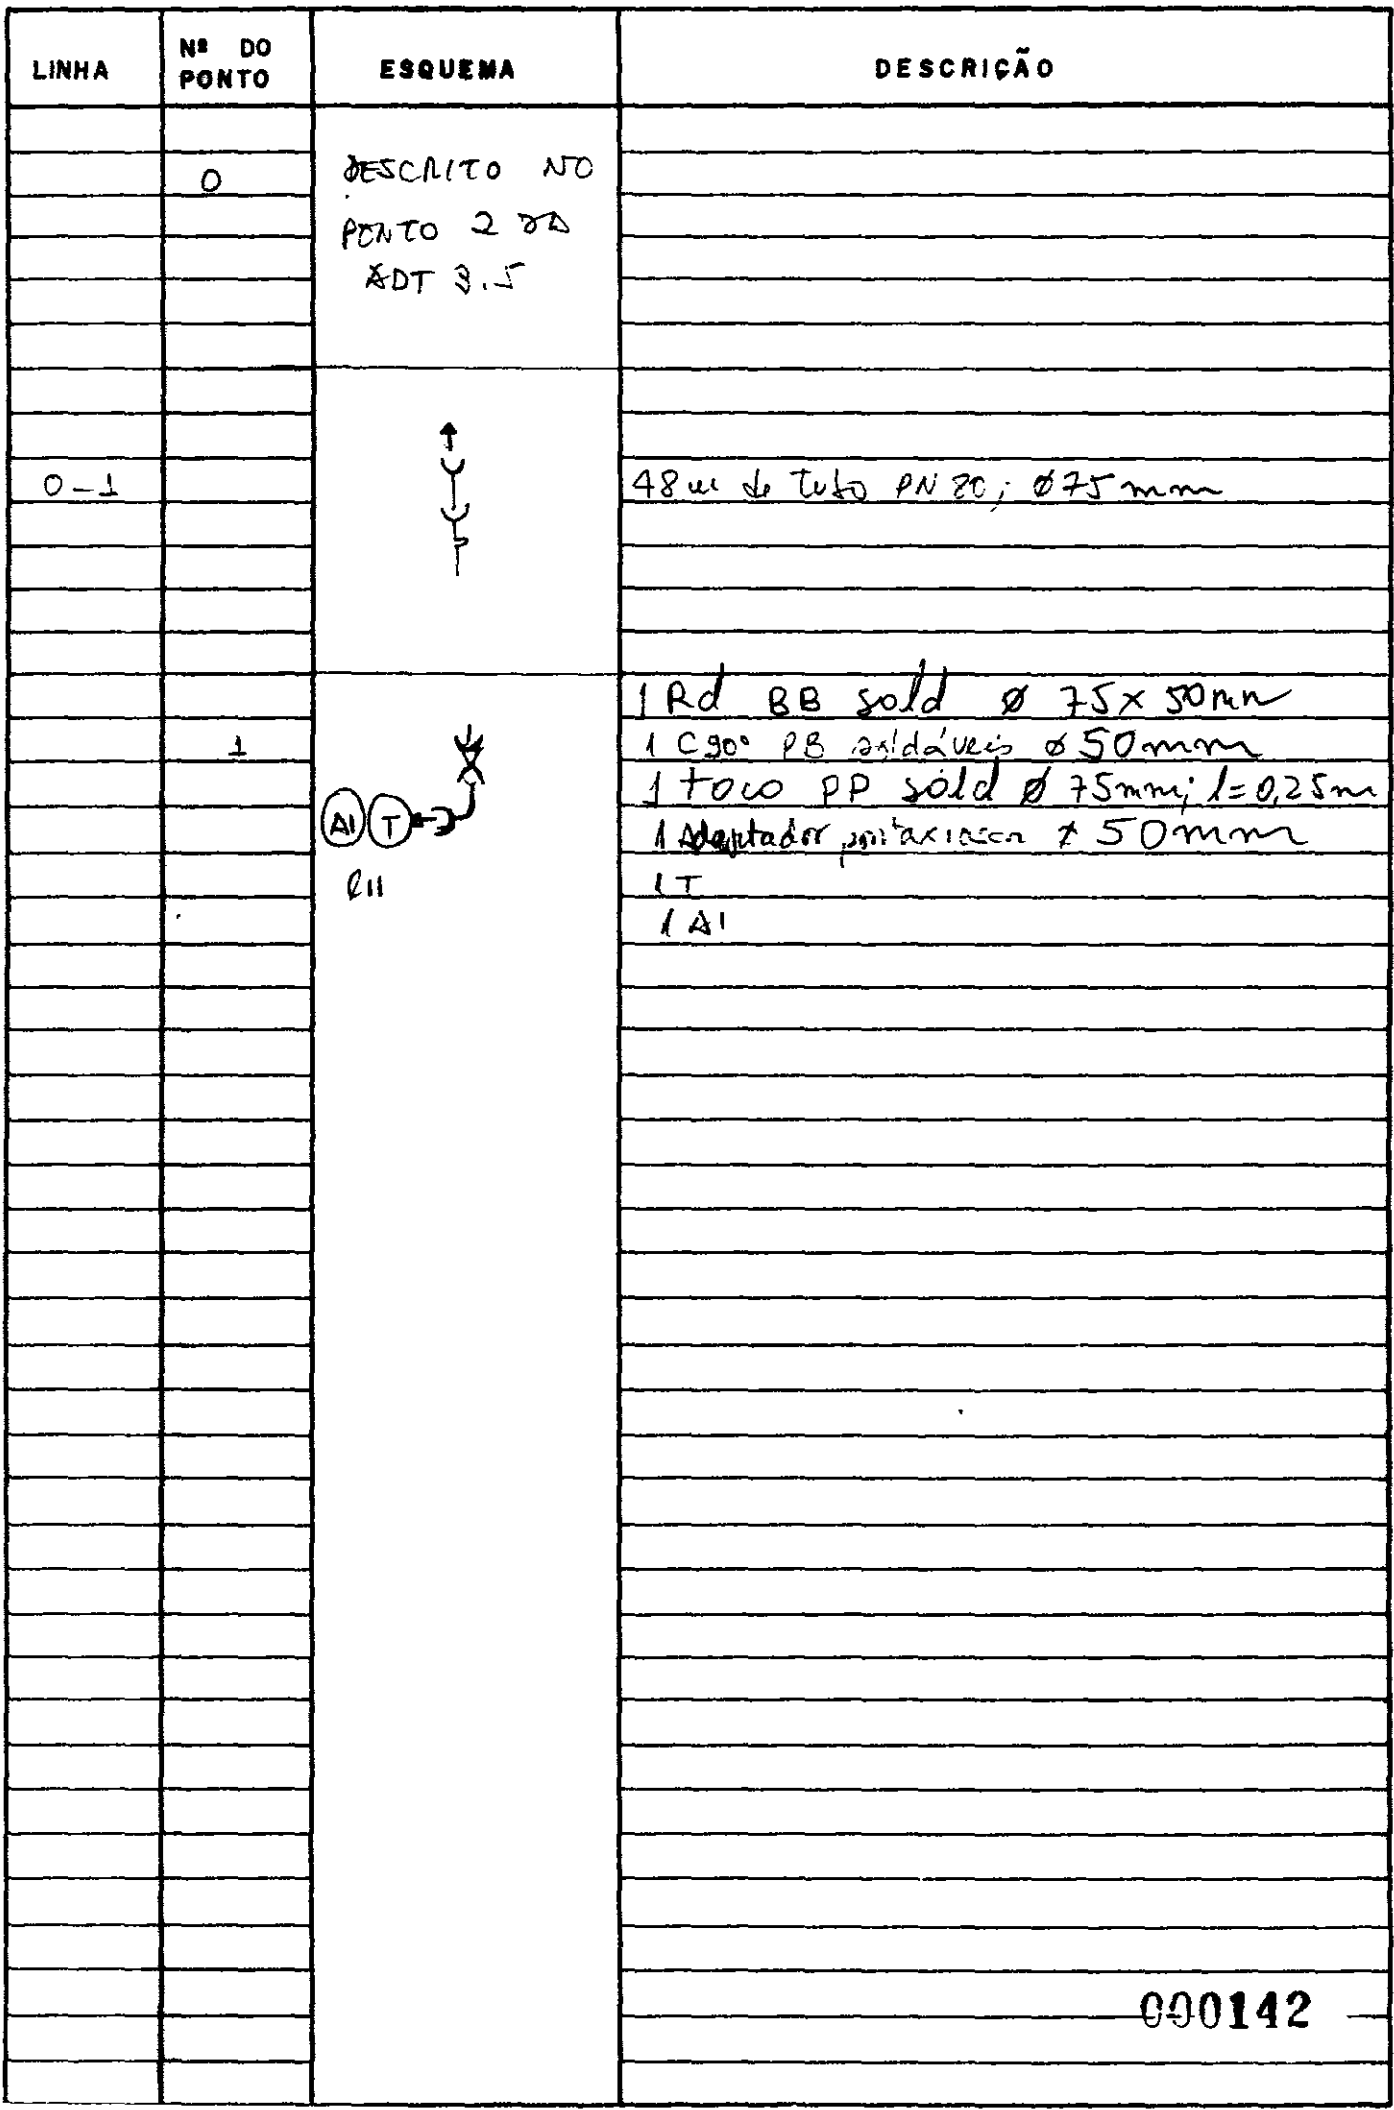 LINHA
Nº DO PONTO
ESQUEMA
DESCRIÇÃO
0
DESCRITO NO
PONTO 2 DA
ADT 3.5
0-1
48 m de Tubo PN 80; Ø75 mm
1 Rd BB sold Ø 75 x 50mm
1
1 C90° PB soldáveis Ø 50mm
1 toco PP sold Ø 75mm; l=0,25m
AI T
1 Adaptador Ø 50mm
1 T
1 AI
000142